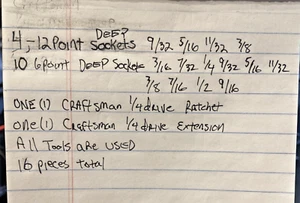 DEEP
4 - 12 Point Sockets 9/32 5/16 11/32 3/8
10 6 Point DEEP Sockets 3/16 7/32 1/4 9/32 5/16 11/32
3/8 7/16 1/2 9/16
ONE (1) CRAftsman 1/4 drive Ratchet
one (1) Craftsman 1/4 drive Extension
All Tools are USED
16 pieces total